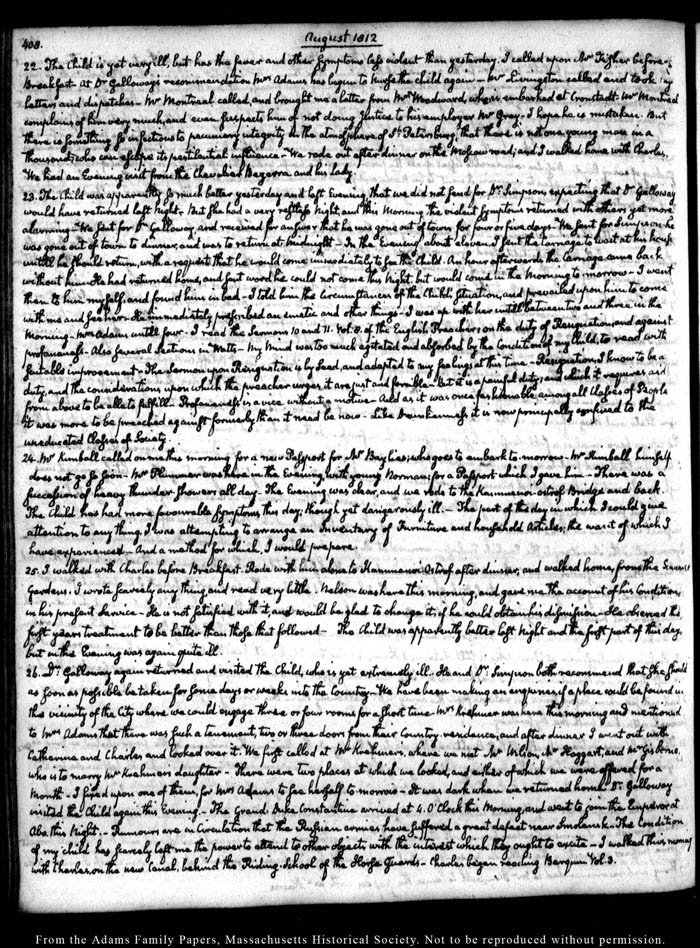 408.
August 1812
22. The Child is yet very ill, but has the fever and other Symptoms less violent than yesterday. I called upon Mr Fisher before
Breakfast. At Dr Galloway's recommendation Mrs Adams has begun to Nurse the child again — Mr Livingston called and took my
letters and dispatches — Mr Montreal called, and brought me a letter from Mr Woodward, who is embarked at Cronstadt. Mr Montreal
complains of him very much, and even suspects him of not doing Justice to his employer Mr Gray. I hope he is mistaken. But
there is something so infectious to pecuniary integrity in the atmosphere of St Petersburg, that there is not one young man in a
thousand, who can escape its pestilential influence — We rode out after dinner on the Moscow road; and I walked home with Charles.
We had an Evening visit from the Chevalier Bezerra and his Lady.
23. The Child was apparently so much better yesterday and last Evening, that we did not send for Dr Simpson, expecting that Dr Galloway
would have returned last Night. But She had a very restless Night, and this Morning the violent Symptoms returned with others yet more
alarming — We sent for Dr Galloway, and received for answer that he was gone out of town for four or five days — We sent for Simpson—he
was gone out of town to dinner, and was to return at Midnight — In the Evening about eleven I sent the Carriage to wait at his house
untill he should return, with a request that he would come immediately to see the Child. An hour afterwards the Carriage came back
without him. He had returned home, and sent word he could not come this Night, but would come in the Morning to-morrow — I went
then to him myself, and found him in bed — I told him the Circumstances of the Child's Situation, and prevailed upon him to come
with me and see her. He immediately prescribed an emetic and other things — I was up with her untill between two and three in the
Morning — Mrs Adams untill four — I read the Sermons 10 and 11. Vol. 8. of the English Preacher; on the duty of Resignation, and against
profaneness — Also several Sections in Watts — My Mind was too much agitated and absorbed by the Condition of my Child, to read with
suitable improvement — The Sermon upon Resignation is by Seed, and adapted to my feelings at this time — Resignation I know to be a
duty, and the considerations upon which the preacher urges it are just and forcible — But it is a painful duty; and which it requires aid
from above to be able to fulfill. Profaneness is a vice without a motive. And as it was once fashionable among all Classes of People
it was more to be preached against formerly than it need be now — Like Drunkenness it is now principally confined to the
uneducated Classes of Society.
24. Mr Kimball called on me this morning for a new Passport for Mr Baylies; who goes to embark to-morrow — Mr Kimball himself
does not go so soon — Mr Plummer was here in the Evening, with young Norman; for a Passport which I gave him — There was a
succession of heavy thunder showers all day. The Evening was clear, and we rode to the Kammenoi-ostrof Bridge and back.
The Child has had more favourable Symptoms this day; though yet dangerously ill. — The part of the day in which I could give
attention to any thing I was attempting to arrange an Inventary of Furniture and household Articles; the want of which I
have experienced — And a method for which, I would prepare.
25. I walked with Charles before Breakfast. Rode with him alone to Kammenoi Ostrof after dinner, and walked home, from the Summer
Gardens. I wrote scarcely any thing, and read very little. Nelson was here this morning, and gave me the account of his Condition,
in his present Service — He is not satisfied with it, and would be glad to change it; if he could obtain his dismission — He observed the
first years treatment to be better than those that followed — The Child was apparently better last Night and the first part of this day,
but in the Evening was again quite ill.
26. Dr Galloway again returned and visited the Child, who is yet extremely ill. He and Dr Simpson both recommend that she should
as soon as possible be taken for some days or weeks into the Country — We have been making enquiries if a place could be found in
the vicinity of the City where we could engage three or four rooms for a short time. Mrs Krehmer was here this morning and mentioned
to Mrs Adams that there was such a tenement, two or three doors from their Country residence, and after dinner I went out with
Catherine and Charles and looked over it. We first called at Mr Krehmer's, where we met Mr Wilson, Mr Hoggart, and Mr Gisborne,
who is to marry Mr Krehmer's daughter — There were two places at which we looked, and either of which we were offered for a
Month — I fixed upon one of them, for Mrs Adams to see herself to morrow — It was dark when we returned home. Dr Galloway
visited the Child again this Evening — The Grand Duke Constantine arrived at 4. O'Clock this Morning, and went to join the Emperor at
Abo, this Night — Rumours are in Circulation that the Russian armies have suffered a great defeat near Smolensk — The Condition
of my child has scarcely left me the power to attend to other objects with the interest which they ought to excite — I walked this morning
with Charles, on the new Canal, behind the Riding-School of the Horse Guards — Charles began reading Berquin Vol. 3.
From the Adams Family Papers, Massachusetts Historical Society. Not to be reproduced without permission.